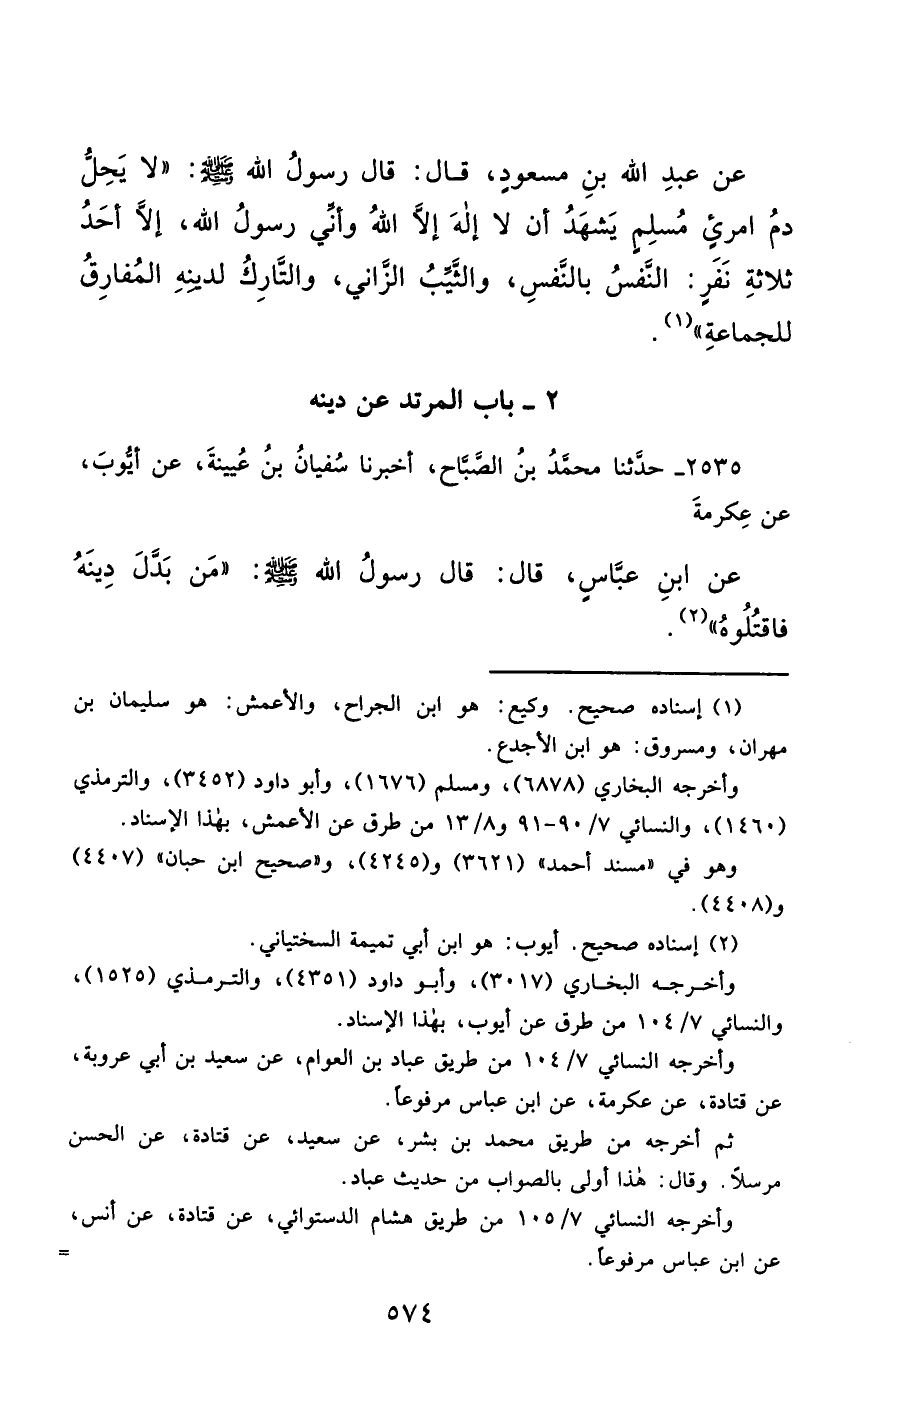 عن عبدِ الله بنِ مسعودٍ، قـال: قال رسولُ الله ﷺ: «لا يَحِلُّ
دمُ امرئٍ مُسلِمٍ يَشهَدُ أن لا إلٰهَ إلاَّ اللهُ وأنِّي رسولُ الله، إلاَّ أحَدُ
ثلاثةِ نَفَرٍ: النَّفسُ بالنَّفسِ، والثَّيِّبُ الزَّاني، والتَّارِكُ لدينِهِ المُفارِقُ
للجماعةِ»(١).
٢ ـ باب المرتد عن دينه
٢٥٣٥ـ حدَّثنا محمَّدُ بنُ الصَّبَّاح، أخبرنا سُفيانُ بنُ عُيينةَ، عن أيُّوبَ،
عن عِكرمةَ
عن ابنِ عبَّاسٍ، قال: قال رسولُ الله ﷺ: «مَن بَدَّلَ دِينَهُ
فاقتُلُوهُ»(٢).
(١) إسناده صحيح. وكيع: هو ابن الجراح، والأعمش: هو سليمان بن
مهران، ومسروق: هو ابن الأجدع.
وأخرجه البخاري (٦٨٧٨)، ومسلم (١٦٧٦)، وأبو داود (٣٤٥٢)، والترمذي
(١٤٦٠)، والنسائي ٧/ ٩٠-٩١ و٨/ ١٣ من طرق عن الأعمش، بهٰذا الإسناد.
وهو في «مسند أحمد» (٣٦٢١) و(٤٢٤٥)، و«صحيح ابن حبان» (٤٤٠٧)
و(٤٤٠٨).
(٢) إسناده صحيح. أيوب: هو ابن أبي تميمة السختياني.
وأخـرجـه البخـاري (٣٠١٧)، وأبـو داود (٤٣٥١)، والتـرمـذي (١٥٢٥)،
والنسائي ٧/ ١٠٤ من طرق عن أيوب، بهٰذا الإسناد.
وأخرجه النسائي ٧/ ١٠٤ من طريق عباد بن العوام، عن سعيد بن أبي عروبة،
عن قتادة، عن عكرمة، عن ابن عباس مرفوعاً.
ثم أخرجه من طريق محمد بن بشر، عن سعيد، عن قتادة، عن الحسن
مرسلاً. وقال: هٰذا أولى بالصواب من حديث عباد.
وأخرجه النسائي ٧/ ١٠٥ من طريق هشام الدستوائي، عن قتادة، عن أنس،
عن ابن عباس مرفوعاً. =
٥٧٤